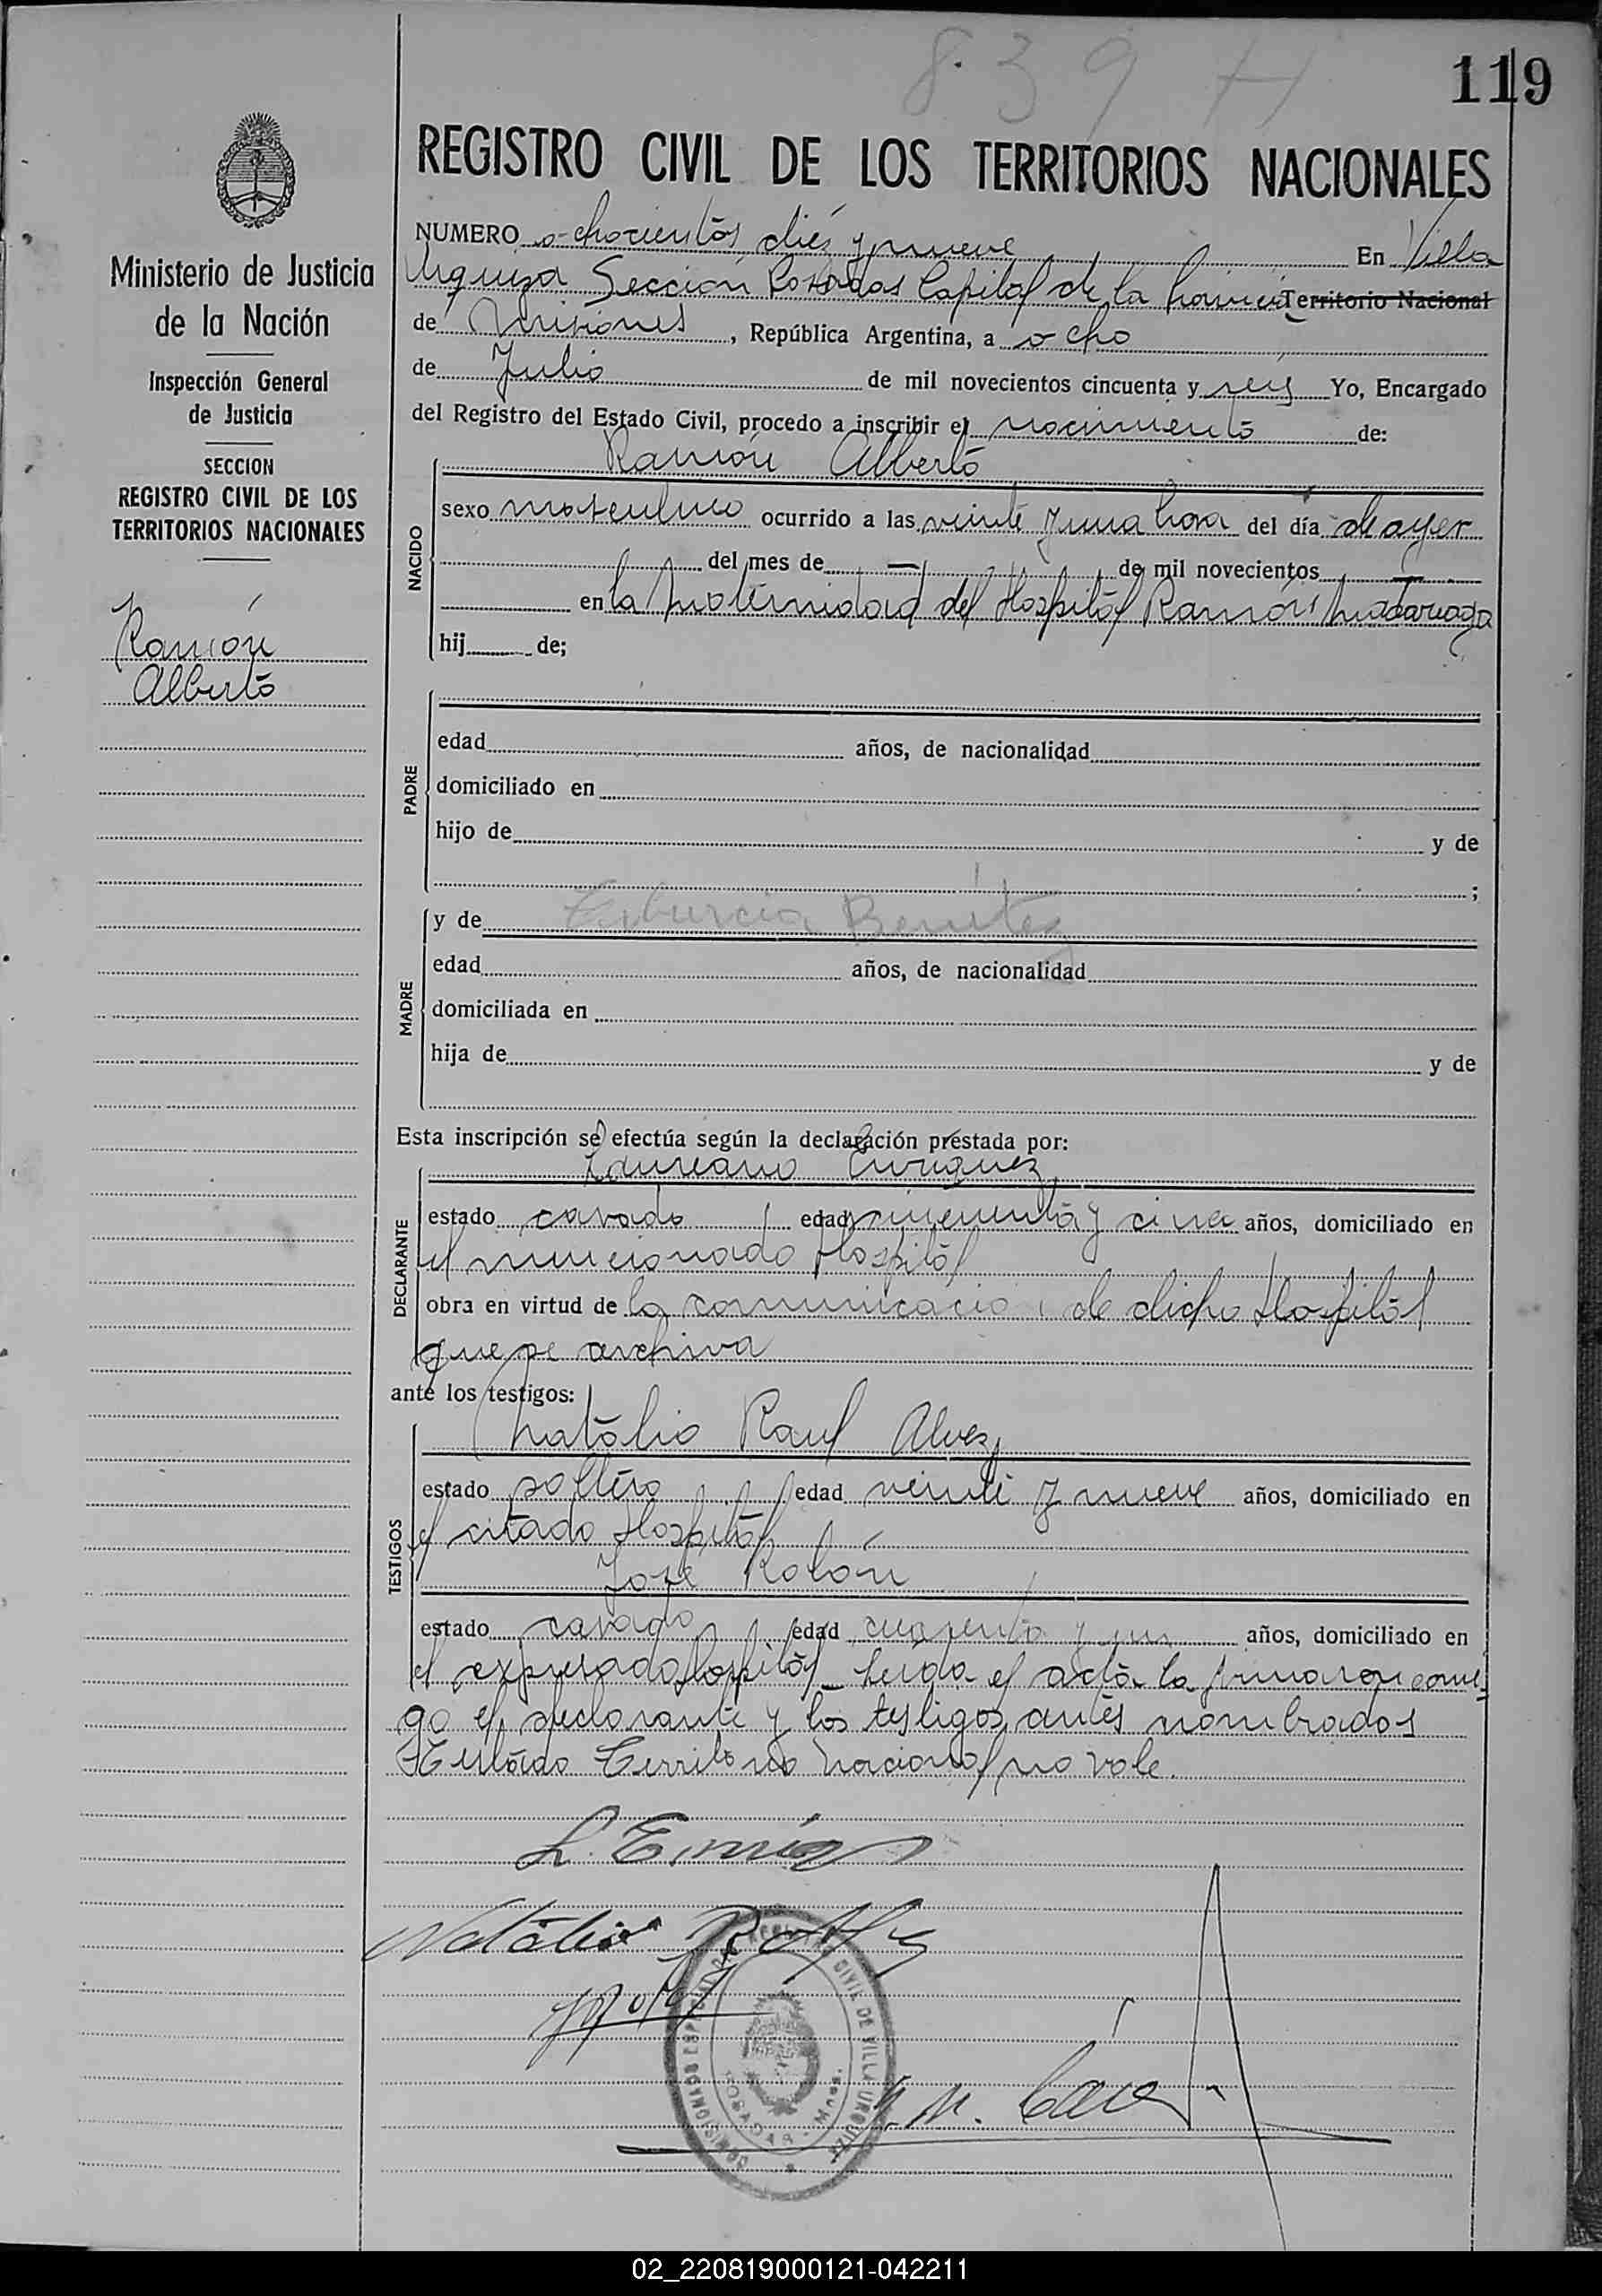 839 H
119
REGISTRO CIVIL DE LOS TERRITORIOS NACIONALES
Ministerio de Justicia
de la Nación
Inspección General
de Justicia
SECCION
REGISTRO CIVIL DE LOS
TERRITORIOS NACIONALES
Ramón
Alberto
NUMERO ochocientos diés y nueve En Villa
Urquiza Sección Posadas Capital de la Territorio Nacional
de Misiones, República Argentina, a ocho
de Julio de mil novecientos cincuenta y seis Yo, Encargado
del Registro del Estado Civil, procedo a inscribir el nacimiento de:
Ramón Alberto
NACIDO
sexo masculino ocurrido a las veinte y una hora del día de ayer
del mes de — de mil novecientos —
en la Maternidad del Hospital Ramón Madariaga
hij de;
PADRE
edad años, de nacionalidad
domiciliado en
hijo de y de
;
MADRE
y de Tiburcia Benítez
edad años, de nacionalidad
domiciliada en
hija de y de
Esta inscripción se efectúa según la declaración prestada por:
DECLARANTE
Laureano Enriquez
estado casado edad cincuenta y cinco años, domiciliado en
el mencionado Hospital
obra en virtud de la comunicación de dicho Hospital
que se archiva
ante los testigos:
TESTIGOS
Natalio Raul Alvez
estado soltero edad veinte y nueve años, domiciliado en
el citado Hospital
José Rolón
estado casado edad cuarenta y un años, domiciliado en
el expresado Hospital_ Leida el acta la firmaron conmi-
go el declarante y los testigos antes nombrados
Testado Territorio Nacional no vale.
L. Enriq
Natalio R Alvez
COMISIONADO REGISTRO CIVIL DE VILLA URQUIZA
POSADAS - Mnes.
02_220819000121-042211